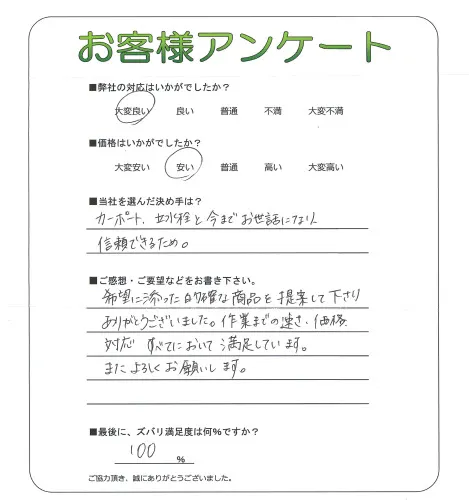 お客様アンケート
■弊社の対応はいかがでしたか？
大変良い 良い 普通 不満 大変不満
■価格はいかがでしたか？
大変安い 安い 普通 高い 大変高い
■当社を選んだ決め手は？
カーポート、立水栓と今までお世話になり
信頼できるため。
■ご感想・ご要望などをお書き下さい。
希望に添った的確な商品を提案して下さり
ありがとうございました。作業までの速さ、価格、
対応 すべてにおいて満足しています。
またよろしくお願いします。
■最後に、ズバリ満足度は何%ですか？
100 %
ご協力頂き、誠にありがとうございました。